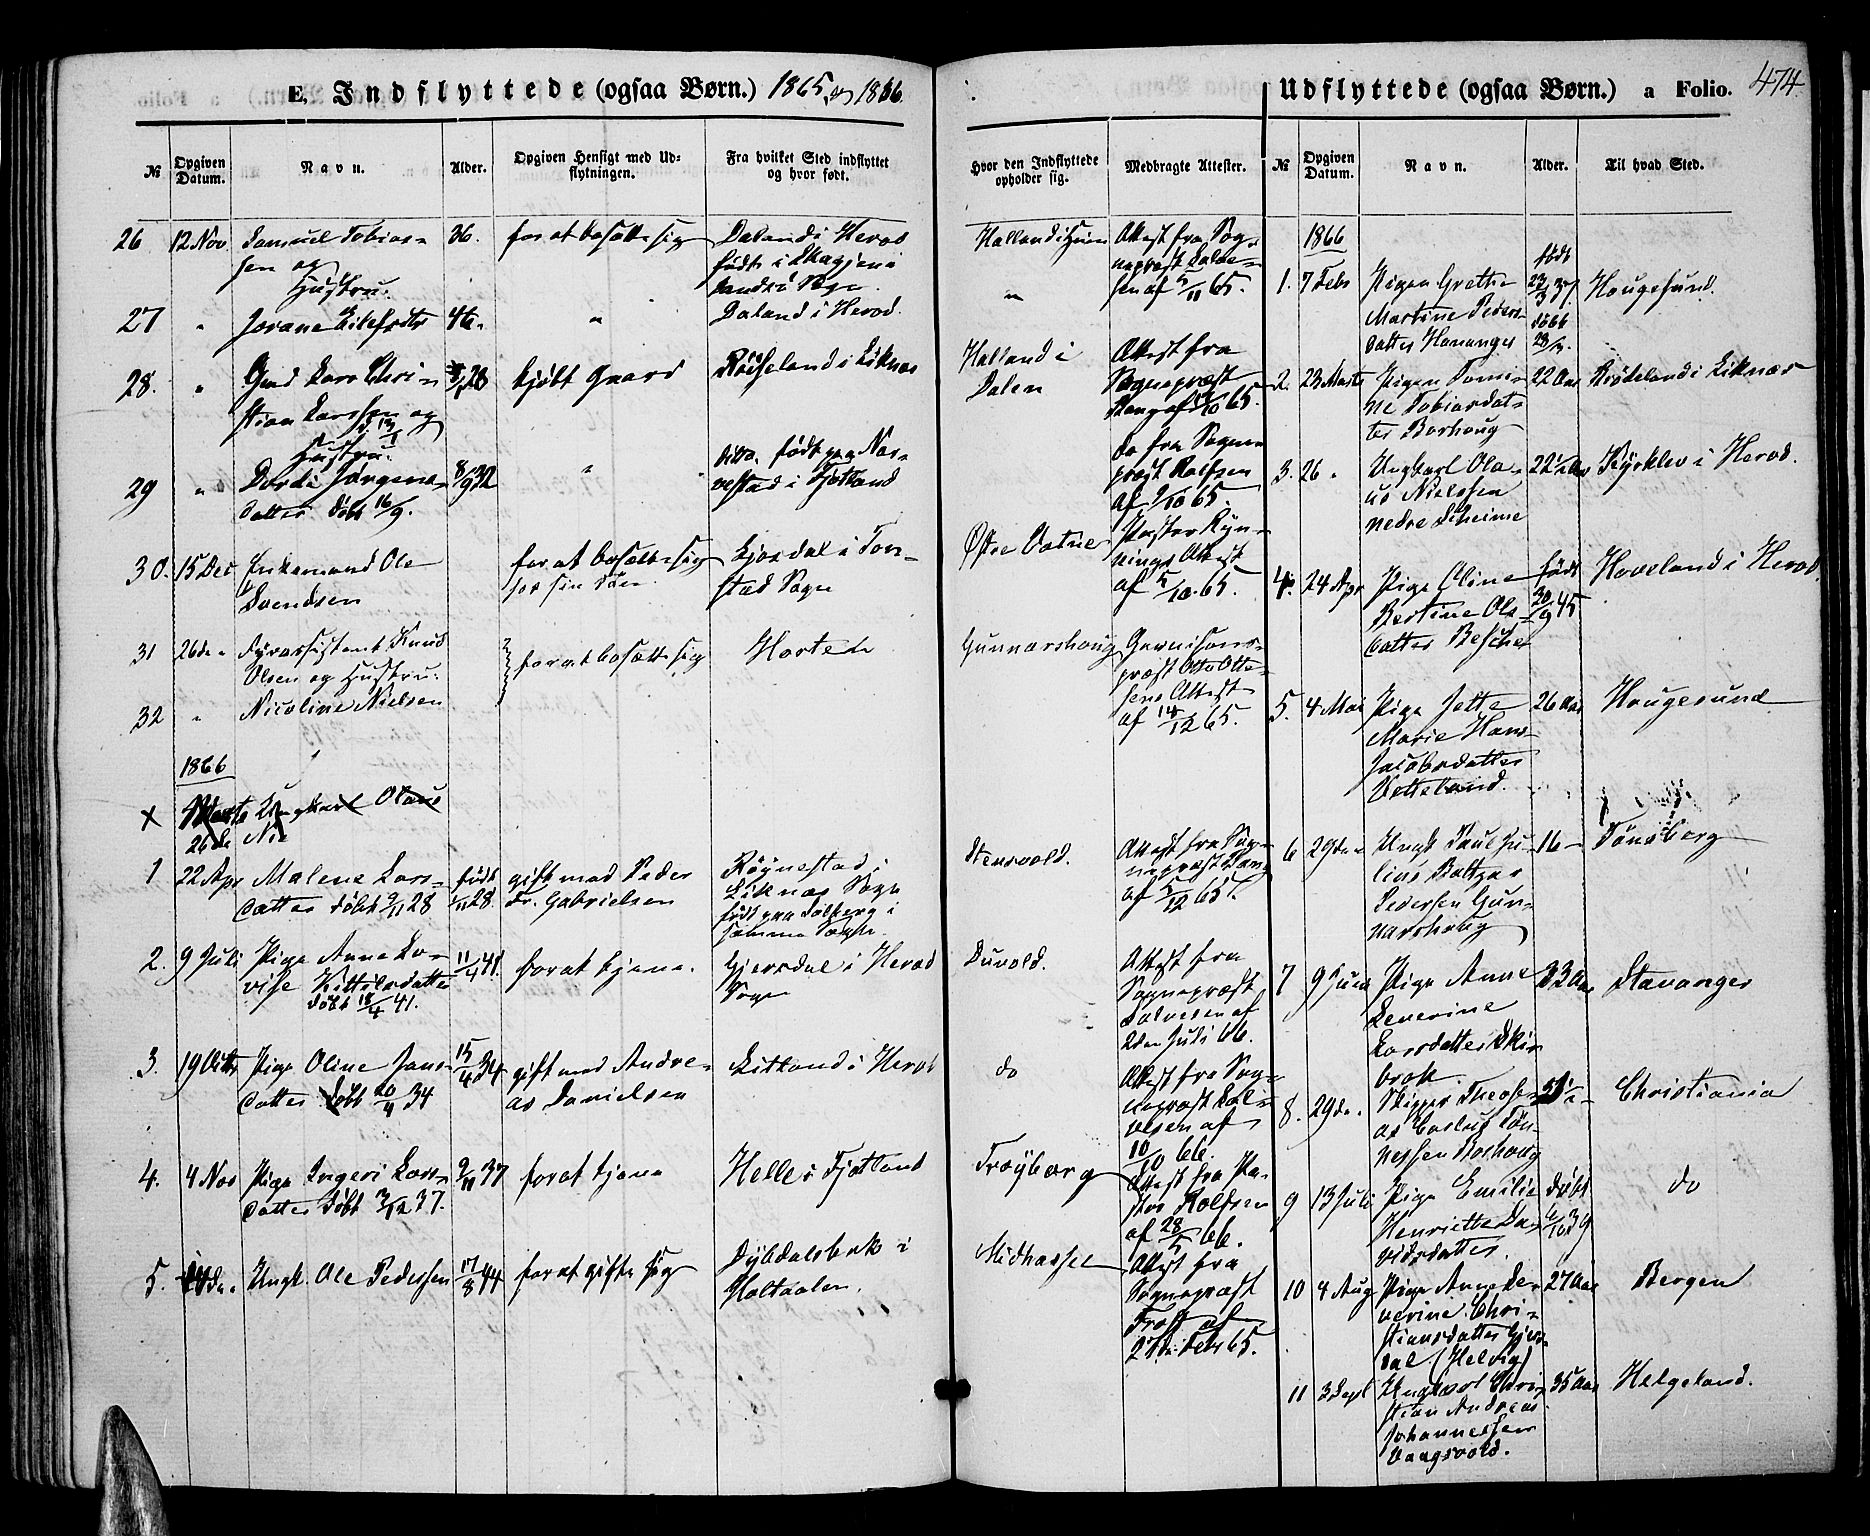 E. Indflyttede (ogsaa Børn.) 1865 og 1866.
№
Opgiven Datum.
Navn.
Alder.
Opgiven Hensigt med Udflytningen.
Fra hvilket Sted indflyttet og hvor født.
Hvor den Indflyttede opholder sig.
Medbragte Attester.
26 12 Nov. Samuel Tobias-
sen og
Hustru:
36. for at bosætte sig
Daland i Herod
født i
Sogn
Attest fra Sog-
nepræst
sen af 5/11 65.
27 " 46. "
Daland i Herod.
"
28. " Lars Chri-
stian Larssen og
Hustru:
28 kjøbt Gaard
i Liknæs
Halland i
Dalen
Attest fra
Sognepræst
65.
29 " Dorthe Jørgens-
datter døbt 16/9.
8/9 32 "
ditto. født paa Nor-
vestad i Fjotland
do fra Sogne-
præst Rolfsen
af 9/10 65.
30. 15 Dec Enkemand Ole
Svendsen
for at bosætte sig
hos sin Søn
i Ton-
stad Sogn
Østre Vatne
Pastor Ryn-
nings Attest
af 5/10 65.
31 26 de " Fyrassistent Knud
Olsen og Hustru:
for at bosætte sig
Horten
Gunnarshoug
Garnisons-
præst Otto Otte-
sens Attest
af 14/12 65.
32 " Nicoline Nielsen
1866
x Marts Ungkarl Olaus
26de Nie
1 22 Apr Malene Lars-
datter døbt 9/11 28
født
/11 28.
gift med Peder
Gabrielsen
Røynestad i
Liknæs Sogn
født paa Solberg i
samme Sogn.
Stensvold.
Attest fra Sog-
nepræst Lang
af 5/12 65.
2. 9 Juli Pige Anne Lo-
vise Kittilsdatter
døbt 18/4 41.
11/4 41. for at tjene.
Gjersdal i Herod
Sogn
Duvold.
Attest fra
Sognepræst
Salvesen af
2den Juli 66.
3. 19 Octb Pige Oline Jans-
datter døbt 20/4 34
15/4 34 gift med Andre-
as Danielsen
Litland i Herod
do
Attest fra Sog-
nepræst Sal-
vesen af
10/10 66.
4. 4 Nov Pige Ingeri Lars-
datter døbt 3/12 37.
9/11 37 for at tjene
Helle i Fjotland
Frøyborg
Attest fra Pa-
stor Rolfsen
af 28/5 66.
5. Ungk. Ole Pedersen
17/8 44 for at gifte sig
Dybdalsbak i
Holtaalen.
Midhassel
Attest fra
Sognepræst
Trost af
27de Febr 65.
Udflyttede (ogsaa Børn.) a Folio. 474.
№
Opgiven Datum.
Navn.
Alder.
Til hvad Sted.
1866
1. 7 Febr Pigen Grethe
Martine Peders-
datter Hananger
født
23/3 37.
døbt
28/3.
Hougesund.
2. 23 Marts Pigen Tomi-
ne Tobiasdat-
ter Borhoug
22 Aar
i Liknæs
3. 26 " Ungkarl Ola-
us Nielssen
nedre Skeime
22 1/2 Aar
i Herod.
4. 24 Apr Pige Oline
Bertine Ols-
datter
født
30/9 45
Hoveland i Herod.
5. 4 Mai Pige Jette
Marie Hans
Jacobsdatter
Vetteland.
26 Aar
Hougesund
6 29 de " Ungk Paul Ju-
lius Baltzer
Pedersen Gun-
narshoug
16 -
Tønsberg
7 9 Juni Pige Anne
Severine
Larsdatter Skei-
brok
23 Aar
Stavanger
8. 29 de. Skipper Theodor-
Tøn-
nessen Borhoug
Christiania
9 13 Juli Pige Emilie
Henriette Da-
vidsdatter.
døbt
6/10 39
do
10 4 Aug Pige Anne Se-
verine Chri-
stiansdatter Gjers-
dal (Helvig)
27 Aar
Bergen
11 3 Sept Ungkarl Chri-
stian Andreas
Johannessen
Vangsvold.
35 Aar
Helgeland.